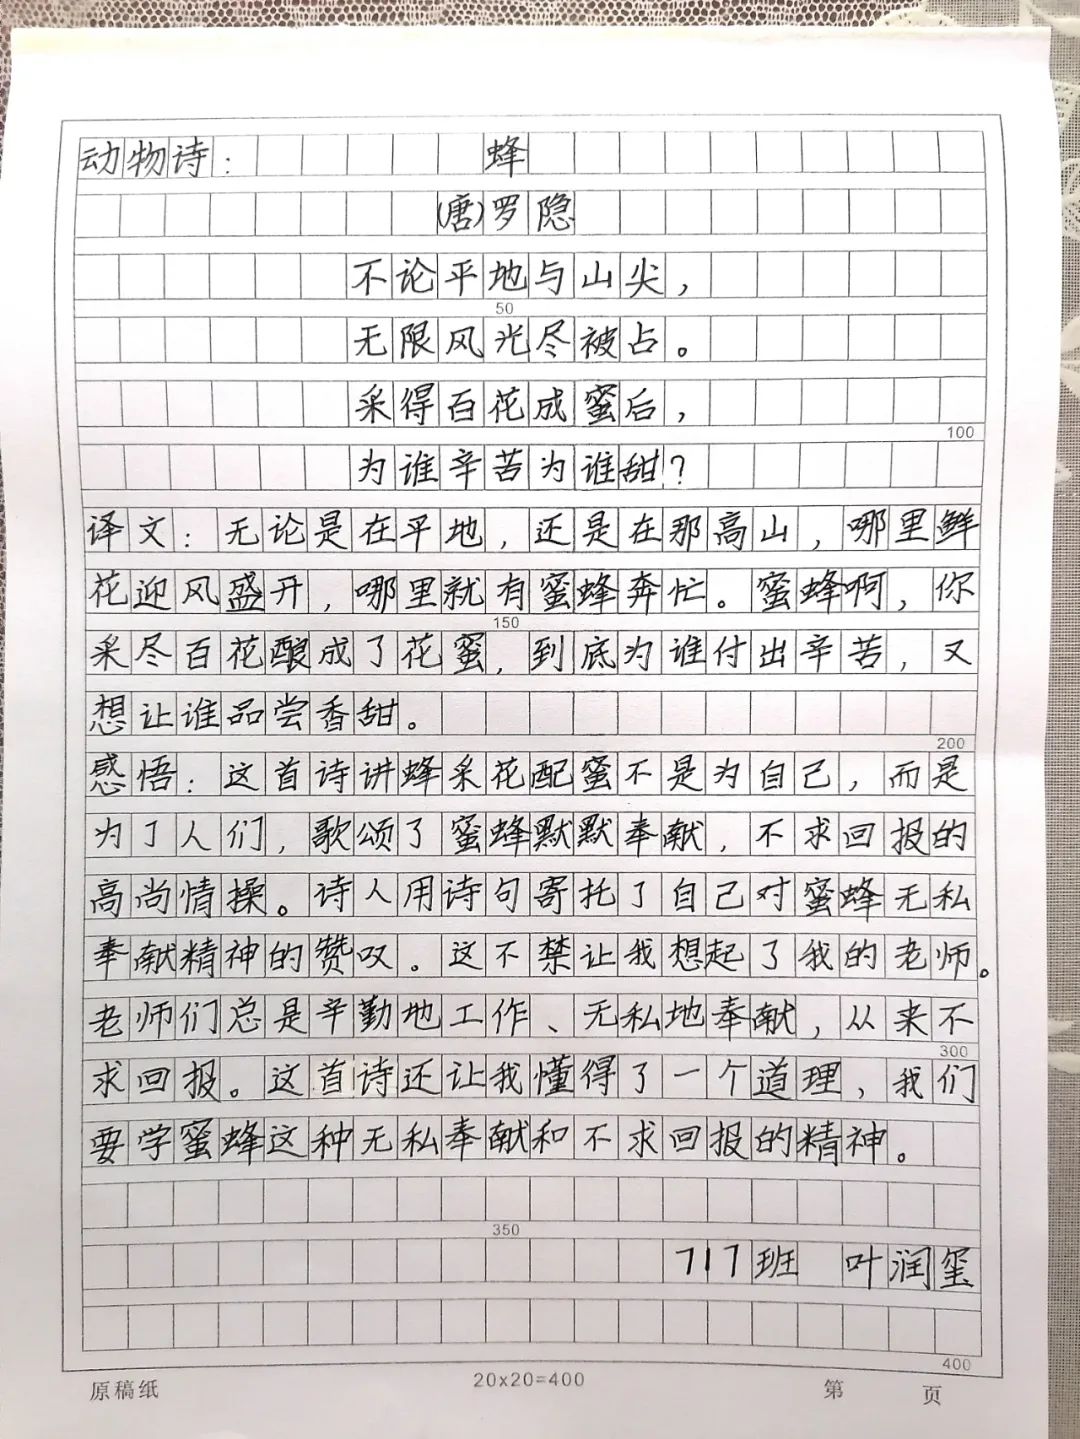 动物诗： 蜂
(唐)罗隐
不论平地与山尖，
无限风光尽被占。
50
采得百花成蜜后，
100
为谁辛苦为谁甜？
译文：无论是在平地，还是在那高山，哪里鲜
花迎风盛开，哪里就有蜜蜂奔忙。蜜蜂啊，你
150
采尽百花酿成了花蜜，到底为谁付出辛苦，又
想让谁品尝香甜。
200
感悟：这首诗讲蜂采花配蜜不是为自己，而是
为了人们，歌颂了蜜蜂默默奉献，不求回报的
高尚情操。诗人用诗句寄托了自己对蜜蜂无私
奉献精神的赞叹。这不禁让我想起了我的老师。
老师们总是辛勤地工作、无私地奉献，从来不
300
求回报。这首诗还让我懂得了一个道理，我们
要学蜜蜂这种无私奉献和不求回报的精神。
350
717班 叶润玺
400
原稿纸 20x20=400 第 页